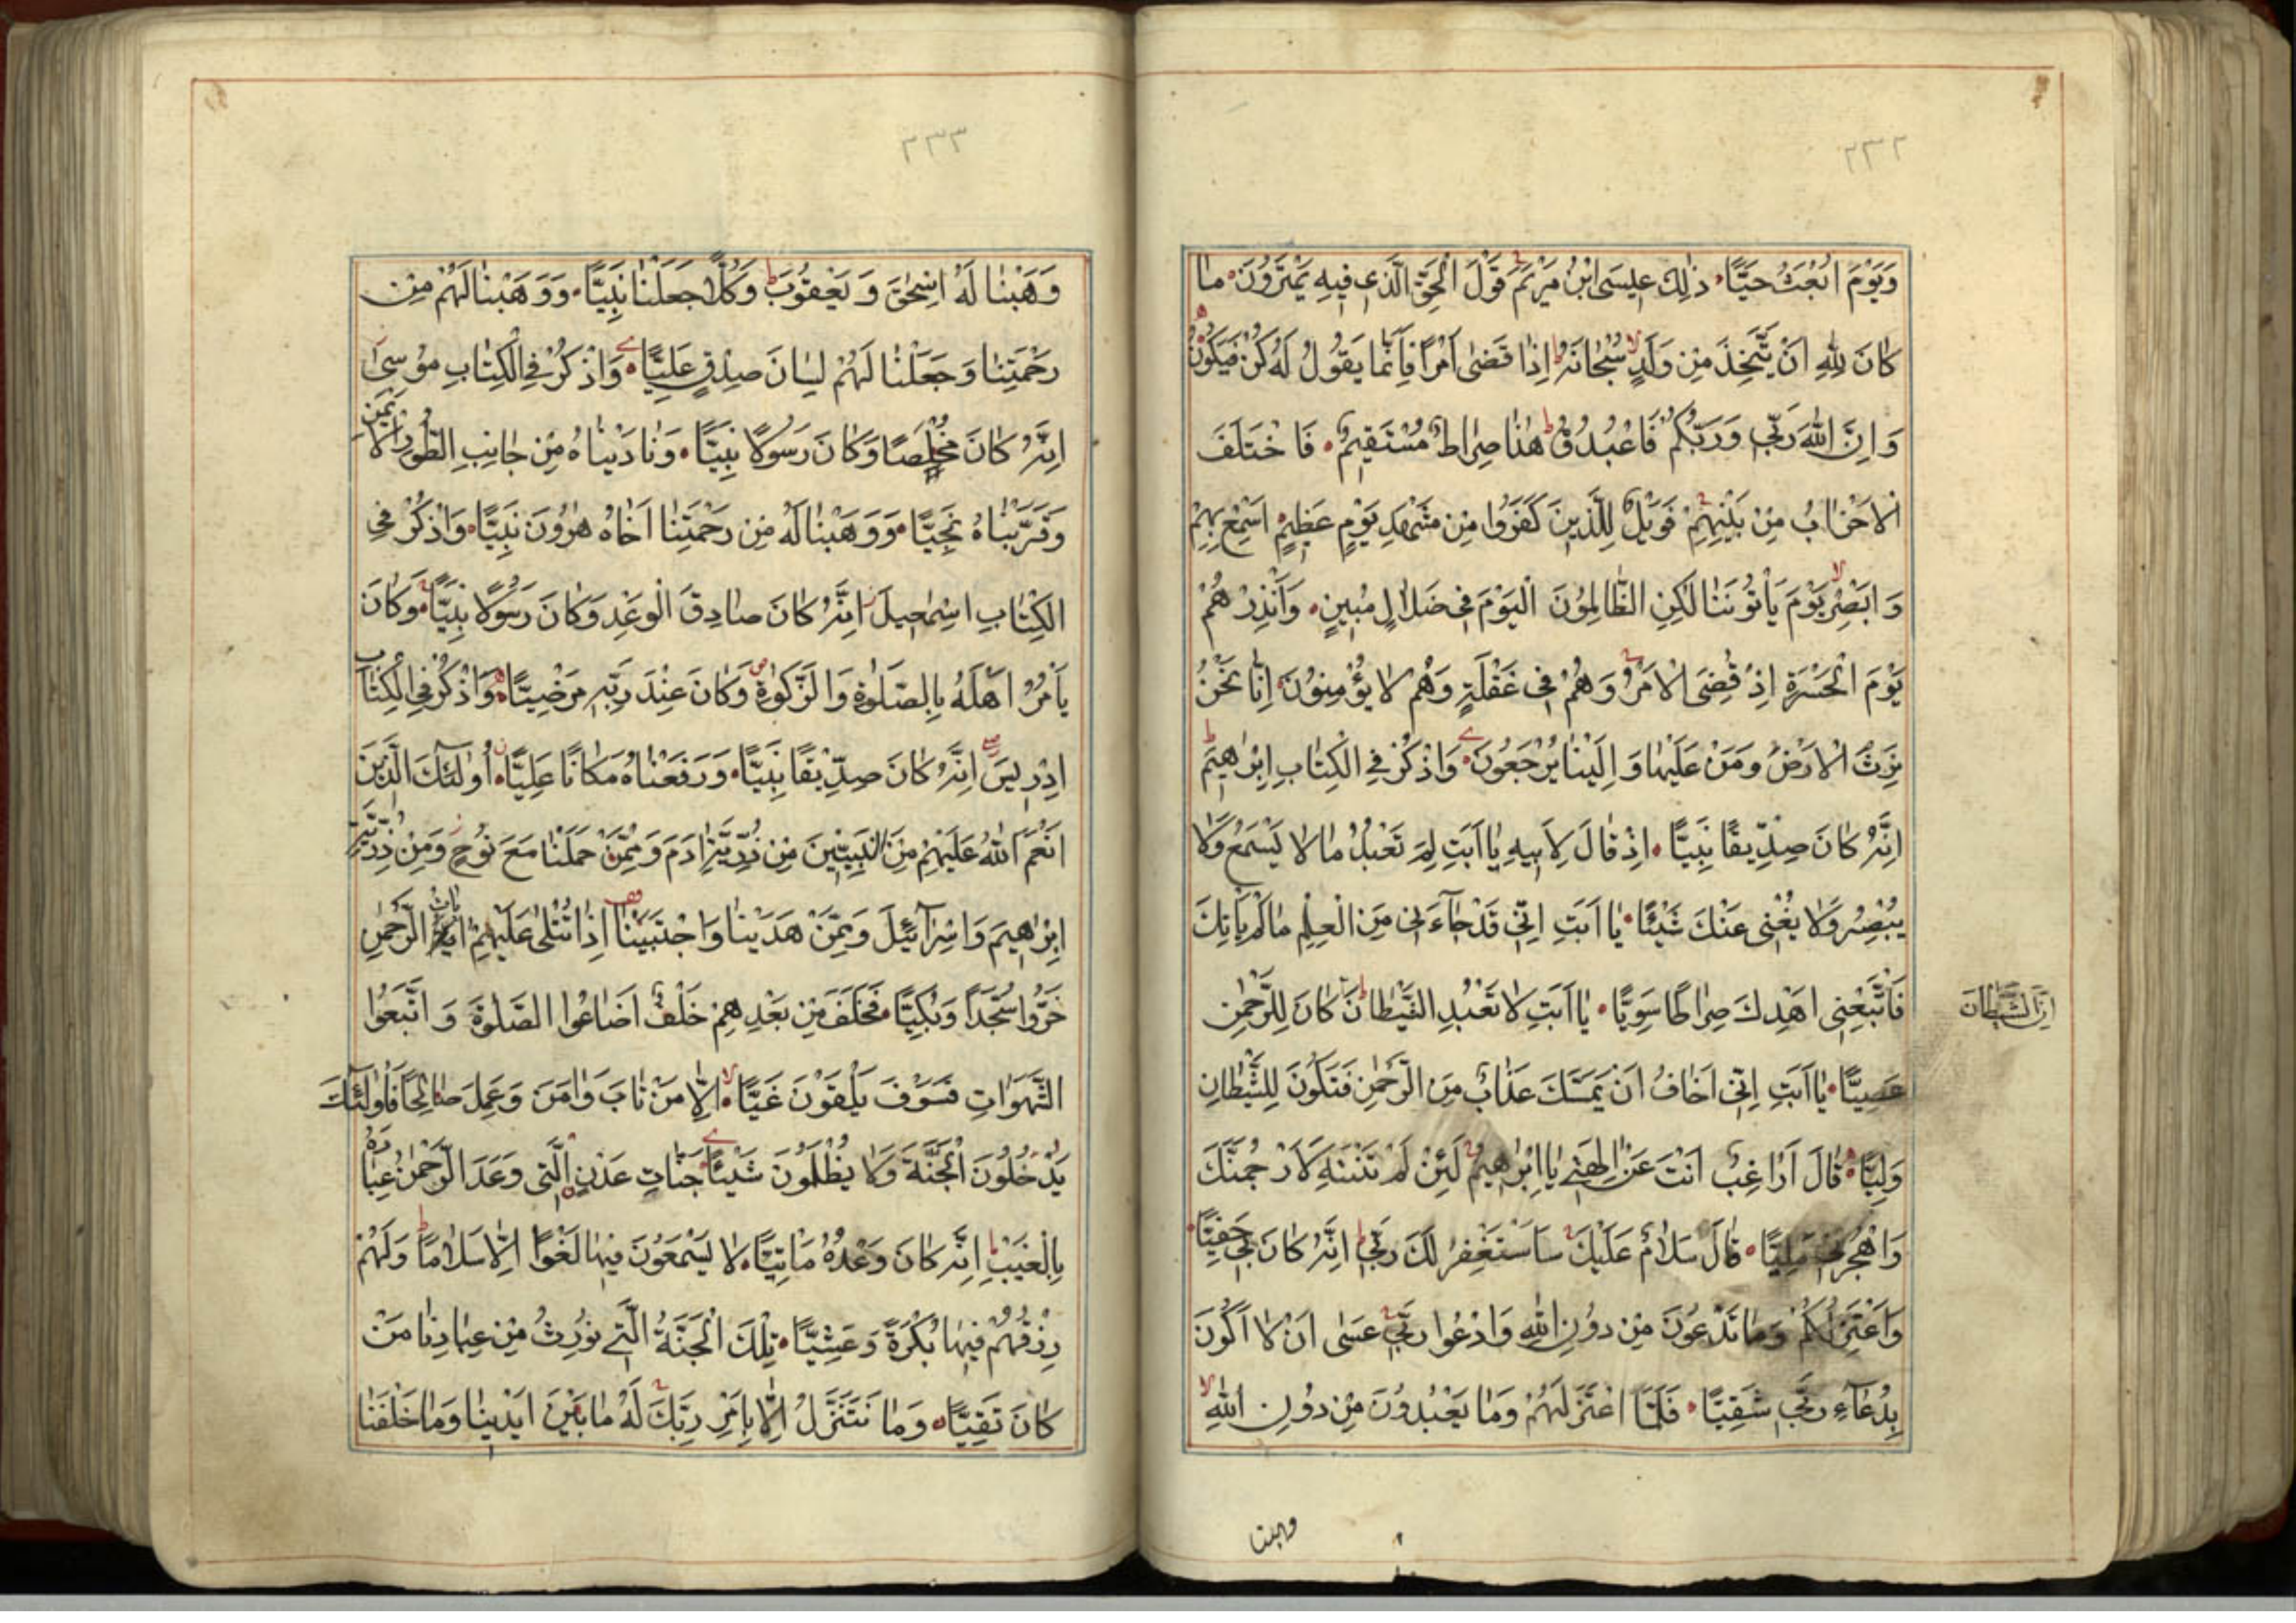 ٢٣٢
وَيَوْمَ اُبْعَثُ حَيًّا ذٰلِكَ عِيسَى ابْنُ مَرْيَمَ قَوْلَ الْحَقِّ الَّذِى فِيهِ يَمْتَرُونَ مَا
كَانَ لِلّٰهِ اَنْ يَتَّخِذَ مِنْ وَلَدٍ سُبْحَانَهُ اِذَا قَضٰى اَمْرًا فَاِنَّمَا يَقُولُ لَهُ كُنْ فَيَكُونُ
وَاِنَّ اللّٰهَ رَبِّى وَرَبُّكُمْ فَاعْبُدُوهُ هٰذَا صِرَاطٌ مُسْتَقِيمٌ فَاخْتَلَفَ
الْاَحْزَابُ مِنْ بَيْنِهِمْ فَوَيْلٌ لِلَّذِينَ كَفَرُوا مِنْ مَشْهَدِ يَوْمٍ عَظِيمٍ اَسْمِعْ بِهِمْ
وَاَبْصِرْ يَوْمَ يَأْتُونَنَا لٰكِنِ الظَّالِمُونَ الْيَوْمَ فِى ضَلَالٍ مُبِينٍ وَاَنْذِرْهُمْ
يَوْمَ الْحَسْرَةِ اِذْ قُضِىَ الْاَمْرُ وَهُمْ فِى غَفْلَةٍ وَهُمْ لَا يُؤْمِنُونَ اِنَّا نَحْنُ
نَرِثُ الْاَرْضَ وَمَنْ عَلَيْهَا وَاِلَيْنَا يُرْجَعُونَ وَاذْكُرْ فِى الْكِتَابِ اِبْرٰهِيمَ
اِنَّهُ كَانَ صِدِّيقًا نَبِيًّا اِذْ قَالَ لِاَبِيهِ يَا اَبَتِ لِمَ تَعْبُدُ مَا لَا يَسْمَعُ وَلَا
يُبْصِرُ وَلَا يُغْنِى عَنْكَ شَيْئًا يَا اَبَتِ اِنِّى قَدْ جَآءَنِى مِنَ الْعِلْمِ مَا لَمْ يَأْتِكَ
فَاتَّبِعْنِى اَهْدِكَ صِرَاطًا سَوِيًّا يَا اَبَتِ لَا تَعْبُدِ الشَّيْطَانَ كَانَ لِلرَّحْمٰنِ
اِنَّ الشَّيْطَانَ
عَصِيًّا يَا اَبَتِ اِنِّى اَخَافُ اَنْ يَمَسَّكَ عَذَابٌ مِنَ الرَّحْمٰنِ فَتَكُونَ لِلشَّيْطَانِ
وَلِيًّا قَالَ اَرَاغِبٌ اَنْتَ عَنْ اٰلِهَتِى يَا اِبْرٰهِيمُ لَئِنْ لَمْ تَنْتَهِ لَاَرْجُمَنَّكَ
وَاهْجُرْنِى مَلِيًّا قَالَ سَلَامٌ عَلَيْكَ سَاَسْتَغْفِرُ لَكَ رَبِّى اِنَّهُ كَانَ بِى حَفِيًّا
وَاَعْتَزِلُكُمْ وَمَا تَدْعُونَ مِنْ دُونِ اللّٰهِ وَاَدْعُوا رَبِّى عَسٰى اَنْ لَا اَكُونَ
بِدُعَآءِ رَبِّى شَقِيًّا فَلَمَّا اعْتَزَلَهُمْ وَمَا يَعْبُدُونَ مِنْ دُونِ اللّٰهِ
وهبنا
٢٣٣
وَهَبْنَا لَهُ اِسْحٰقَ وَيَعْقُوبَ وَكُلًّا جَعَلْنَا نَبِيًّا وَوَهَبْنَا لَهُمْ مِنْ
رَحْمَتِنَا وَجَعَلْنَا لَهُمْ لِسَانَ صِدْقٍ عَلِيًّا وَاذْكُرْ فِى الْكِتَابِ مُوسٰى
اِنَّهُ كَانَ مُخْلَصًا وَكَانَ رَسُولًا نَبِيًّا وَنَادَيْنَاهُ مِنْ جَانِبِ الطُّورِ الْاَيْمَنِ
وَقَرَّبْنَاهُ نَجِيًّا وَوَهَبْنَا لَهُ مِنْ رَحْمَتِنَا اَخَاهُ هٰرُونَ نَبِيًّا وَاذْكُرْ فِى
الْكِتَابِ اِسْمٰعِيلَ اِنَّهُ كَانَ صَادِقَ الْوَعْدِ وَكَانَ رَسُولًا نَبِيًّا وَكَانَ
يَأْمُرُ اَهْلَهُ بِالصَّلٰوةِ وَالزَّكٰوةِ وَكَانَ عِنْدَ رَبِّهِ مَرْضِيًّا وَاذْكُرْ فِى الْكِتَابِ
اِدْرِيسَ اِنَّهُ كَانَ صِدِّيقًا نَبِيًّا وَرَفَعْنَاهُ مَكَانًا عَلِيًّا اُولٰئِكَ الَّذِينَ
اَنْعَمَ اللّٰهُ عَلَيْهِمْ مِنَ النَّبِيِّينَ مِنْ ذُرِّيَّةِ اٰدَمَ وَمِمَّنْ حَمَلْنَا مَعَ نُوحٍ وَمِنْ ذُرِّيَّةِ
اِبْرٰهِيمَ وَاِسْرَآئِيلَ وَمِمَّنْ هَدَيْنَا وَاجْتَبَيْنَا اِذَا تُتْلٰى عَلَيْهِمْ اٰيَاتُ الرَّحْمٰنِ
خَرُّوا سُجَّدًا وَبُكِيًّا فَخَلَفَ مِنْ بَعْدِهِمْ خَلْفٌ اَضَاعُوا الصَّلٰوةَ وَاتَّبَعُوا
الشَّهَوَاتِ فَسَوْفَ يَلْقَوْنَ غَيًّا اِلَّا مَنْ تَابَ وَاٰمَنَ وَعَمِلَ صَالِحًا فَاُولٰئِكَ
يَدْخُلُونَ الْجَنَّةَ وَلَا يُظْلَمُونَ شَيْئًا جَنَّاتِ عَدْنٍ الَّتِى وَعَدَ الرَّحْمٰنُ عِبَادَهُ
بِالْغَيْبِ اِنَّهُ كَانَ وَعْدُهُ مَأْتِيًّا لَا يَسْمَعُونَ فِيهَا لَغْوًا اِلَّا سَلَامًا وَلَهُمْ
رِزْقُهُمْ فِيهَا بُكْرَةً وَعَشِيًّا تِلْكَ الْجَنَّةُ الَّتِى نُورِثُ مِنْ عِبَادِنَا مَنْ
كَانَ تَقِيًّا وَمَا نَتَنَزَّلُ اِلَّا بِاَمْرِ رَبِّكَ لَهُ مَا بَيْنَ اَيْدِينَا وَمَا خَلْفَنَا